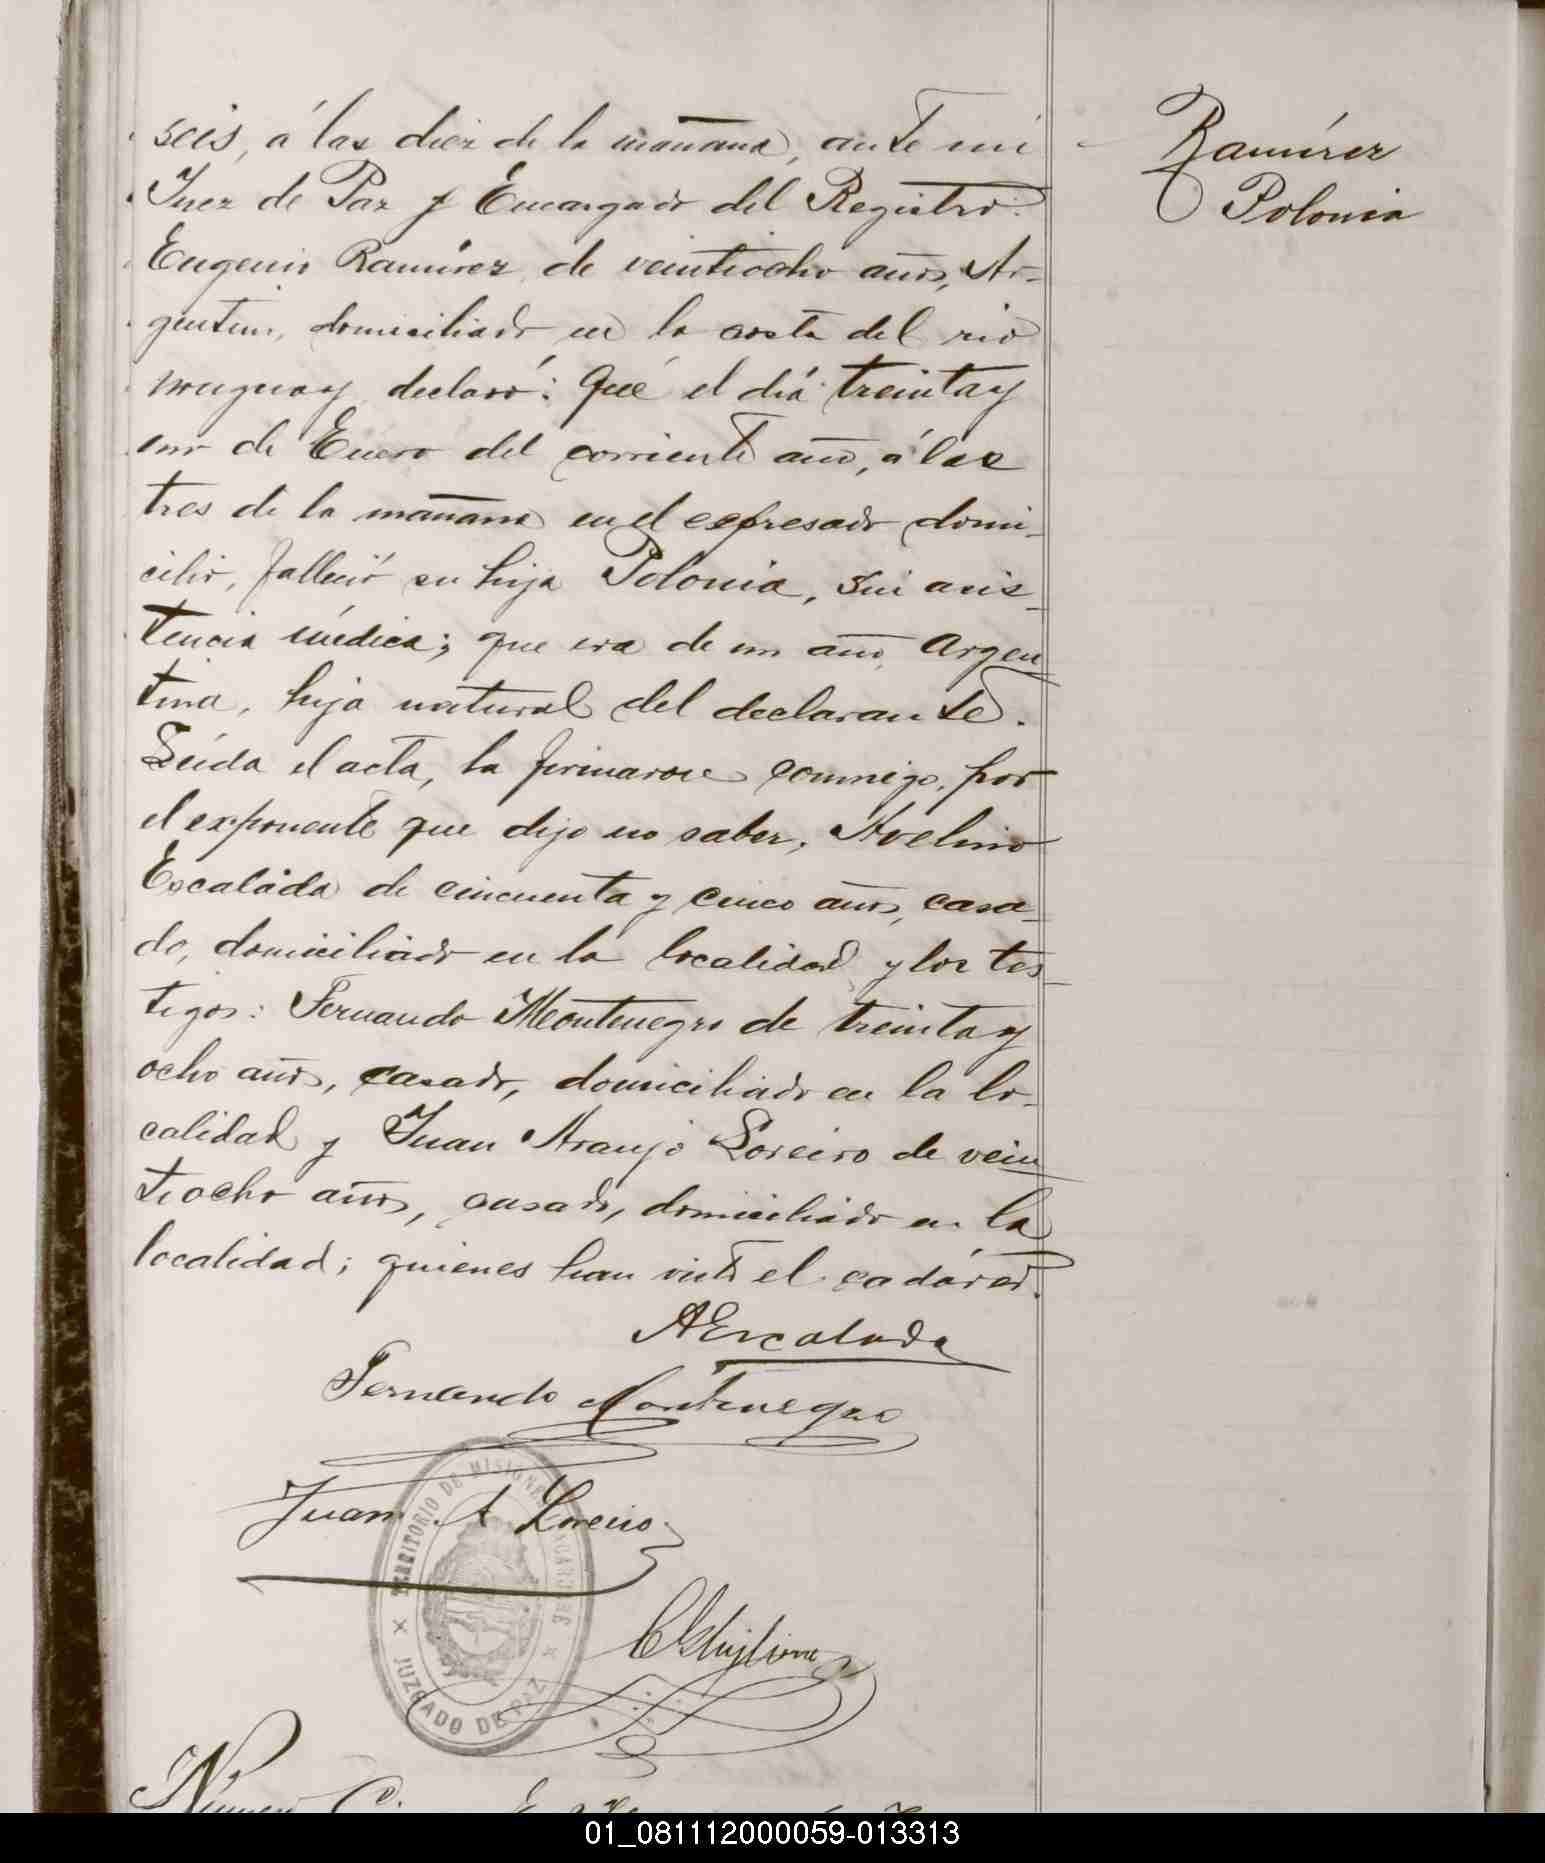 seis, á las diez de la mañana, ante mi
Juez de Paz y Encargado del Registro:
Eugenio Ramírez, de veintiocho años, Ar-
gentino, domiciliado en la costa del rio
uruguay, declaró: Qué el día treinta y
uno de Enero del corriente año, á las
tres de la mañana en el expresado domi-
cilio, falleció su hija Polonia, sin asis-
tencia médica; que era de un año, Argen-
tina, hija natural del declarante.
Leída el acta, la firmaron conmigo, por
el exponente que dijo no saber, Avelino
Escalada de cincuenta y cinco años, casa-
do, domiciliado en la localidad, y los tes-
tigos: Fernando Montenegro de treinta y
ocho años, casado, domiciliado en la lo-
calidad y Juan Araujo Loreiro de vein-
tiocho años, casado, domiciliado en la
localidad; quienes han visto el cadáver.
Ramírez
Polonia
AEscalada
Fernando Montenegro
Juan A Loreiro
TERRITORIO DE MISIONES
JUZGADO DE PAZ
Número
01_081112000059-013313